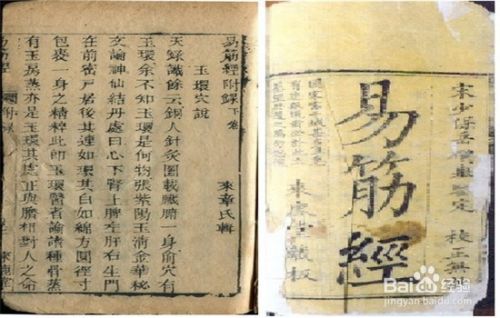 易筋經附錄下卷
來章氏輯
玉環穴說
天錄識餘云銅人針灸圖載臟腑一身俞穴有
玉環余不知玉環是何物張紫陽玉清金華秘
文論神仙結丹處曰心下腎上脾左肝右生門
在前密戶居後其連如環其白如綿方圓徑寸
包裹一身之精粹此即玉環醫者論諸種骨蒸
有玉房蒸亦是玉環其處正與臍相對人之命
宋少保岳鵬舉鑒定
校正無訛
易筋經
來章堂藏板
Bai百度经验
jingyan.baidu.com